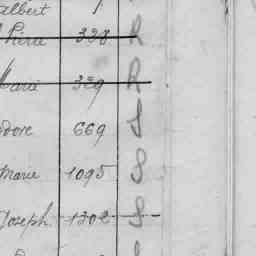 albert 1
Pierre 328 R
Marie 329 R
dore 669 S
Marie 1095 S
Joseph 1302 S